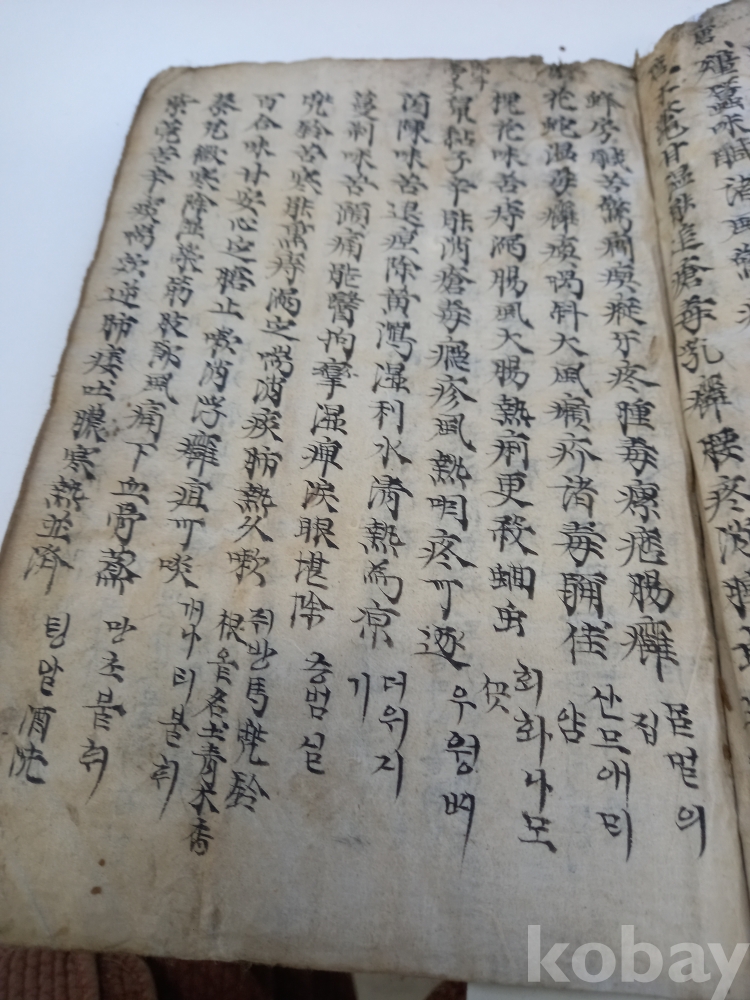 殭蠶味鹹治風
木鱉甘温能追瘡毒乳癰腰疼消腫
蜂房鹹苦驚癎瘈瘲牙疼腫毒瘰癧腸癰 믈벌의집
花蛇温毒癱瘓喎斜大風癩疥諸毒誦佳 산므애 얌
槐花味苦痔漏腸風大腸熱痢更殺蛔虫 회화나모곳
鼠粘子辛能消瘡毒癮疹風熱咽疼可逐 우웡삐
茵陳味苦退疸除黄瀉湿利水清熱為凉 더위지기
蔓荊味苦頭痛能醫拘攣湿痺淚眼堪除 승범실
兜鈴苦寒能熏痔漏定喘消痰肺熱久嗽 쥐방馬兜鈴 根 名土青木香
百合味甘安心定膽止嗽消浮癰疽可啖 개나리불휘
秦艽微寒除湿榮筋肢節風痛下血骨蒸 망초불휘
紫菀苦辛痰喘咳逆肺痿吐膿寒熱並濟 텅알 酒洗
kobay